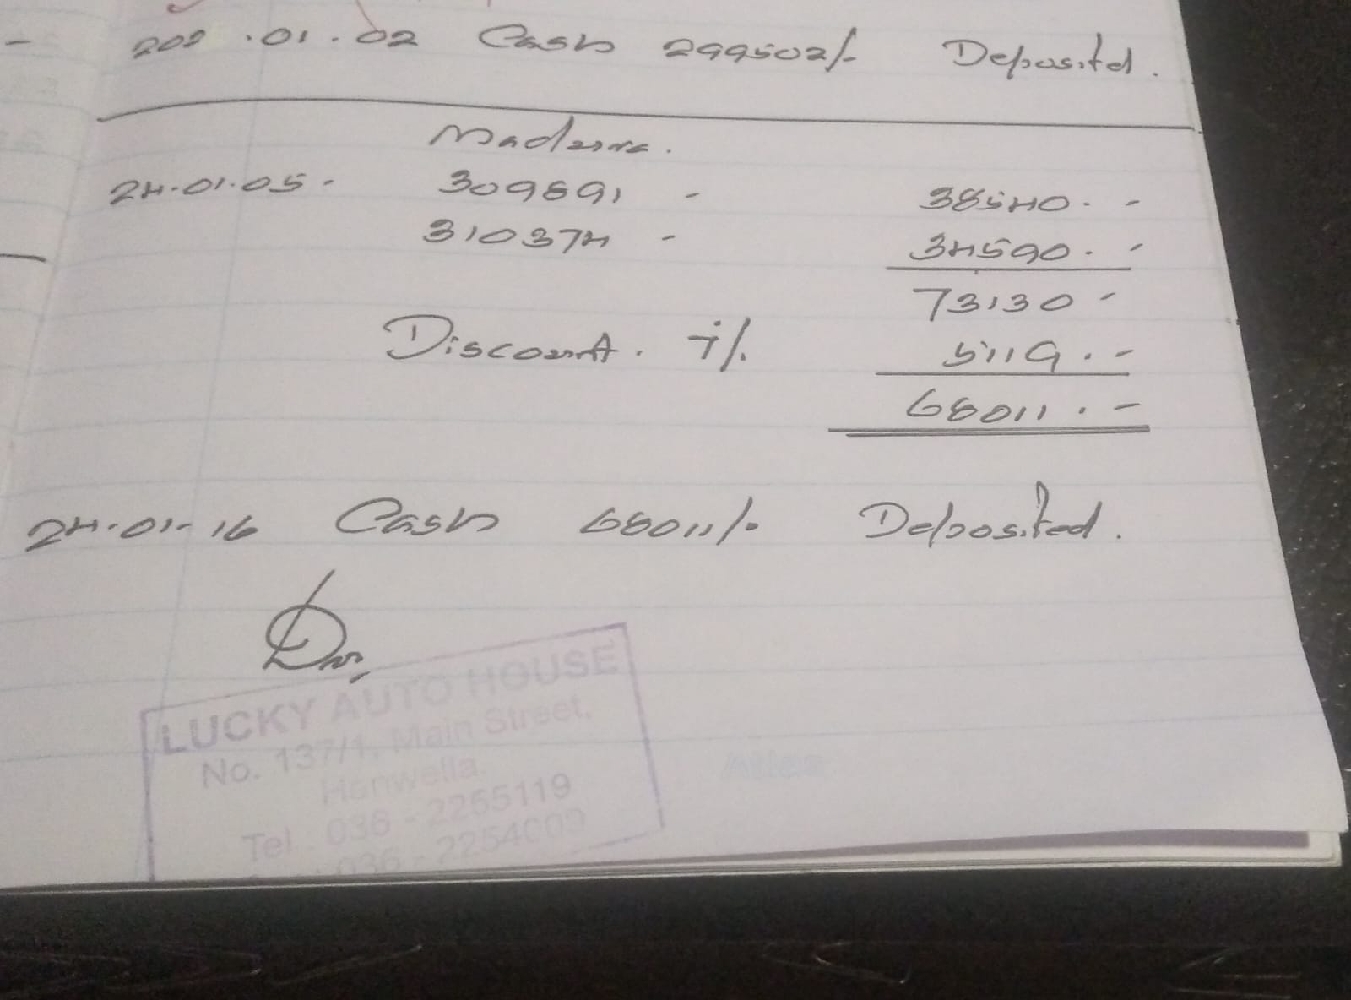 202 .01.02 Cash 299502/- Deposited.
24.01.05 - 309891 - 38540. -
310374 - 34590. -
73130 -
Discount. 7%. 5119. -
68011. -
24.01.16 Cash 68011/- Deposited.
LUCKY AUTO HOUSE
No. 137/1, Main Street,
Hanwella.
Tel : 036 - 2255119
036 - 2254009
Atlas